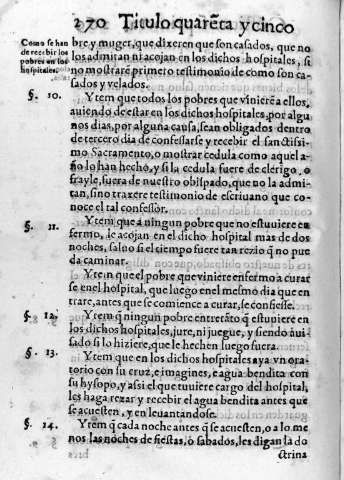 270 Titulo quarēta y cinco
Como se han
de recebir los
pobres en los
hospitales.
bre, y muger, que dixeren que son casados, que no
los admitan ni acojan en los dichos hospitales, si
no mostrarē primero testimonio de como son ca-
sados y velados.
§. 10. Ytem que todos los pobres que vinierē a ellos,
auiendo de estar en los dichos hospitales, por algu
nos dias, por alguna causa, sean obligados dentro
de tercero dia de confessarse y recebir el sanctissi-
mo Sacramento, o mostrar cedula como aquel a-
ño lo han hecho, y si la cedula fuere de clérigo, o
frayle, fuera de nuestro obispado, que no la admi-
tan, sino traxere testimonio de escriuano que co-
noce el tal confessor.
§. 11. Ytem que a ningun pobre que no estuuiere en
fermo, le acojan en el dicho hospital mas de dos
noches, saluo si el tiempo fuere tan rezio q̄ no pue
da caminar.
Ytē in que el pobre que viniere enfermo a curar
se en el hospital, que luego en el mesmo dia que en
trare, antes que se comience a curar, se confiesse.
§. 12. Ytem q̄ ningun pobre entretāto q̄ estuuiere en
los dichos hospitales, jure, ni juegue, y siendo aui-
sado si lo hiziere, que le hechen luego fuera.
§. 13. Ytem que en los dichos hospitales aya vn ora-
torio con su cruz, e imagines, e agua bendita con
su hysopo, y assi el que tuuiere cargo del hospital,
les haga rezar y recebir el agua bendita antes que
se acuesten, y en leuantandose.
§. 14. Ytem q̄ cada noche antes q̄ se acuesten, o a lo me
nos las noches de fiestas, o sabados, les digan la do
ctrina